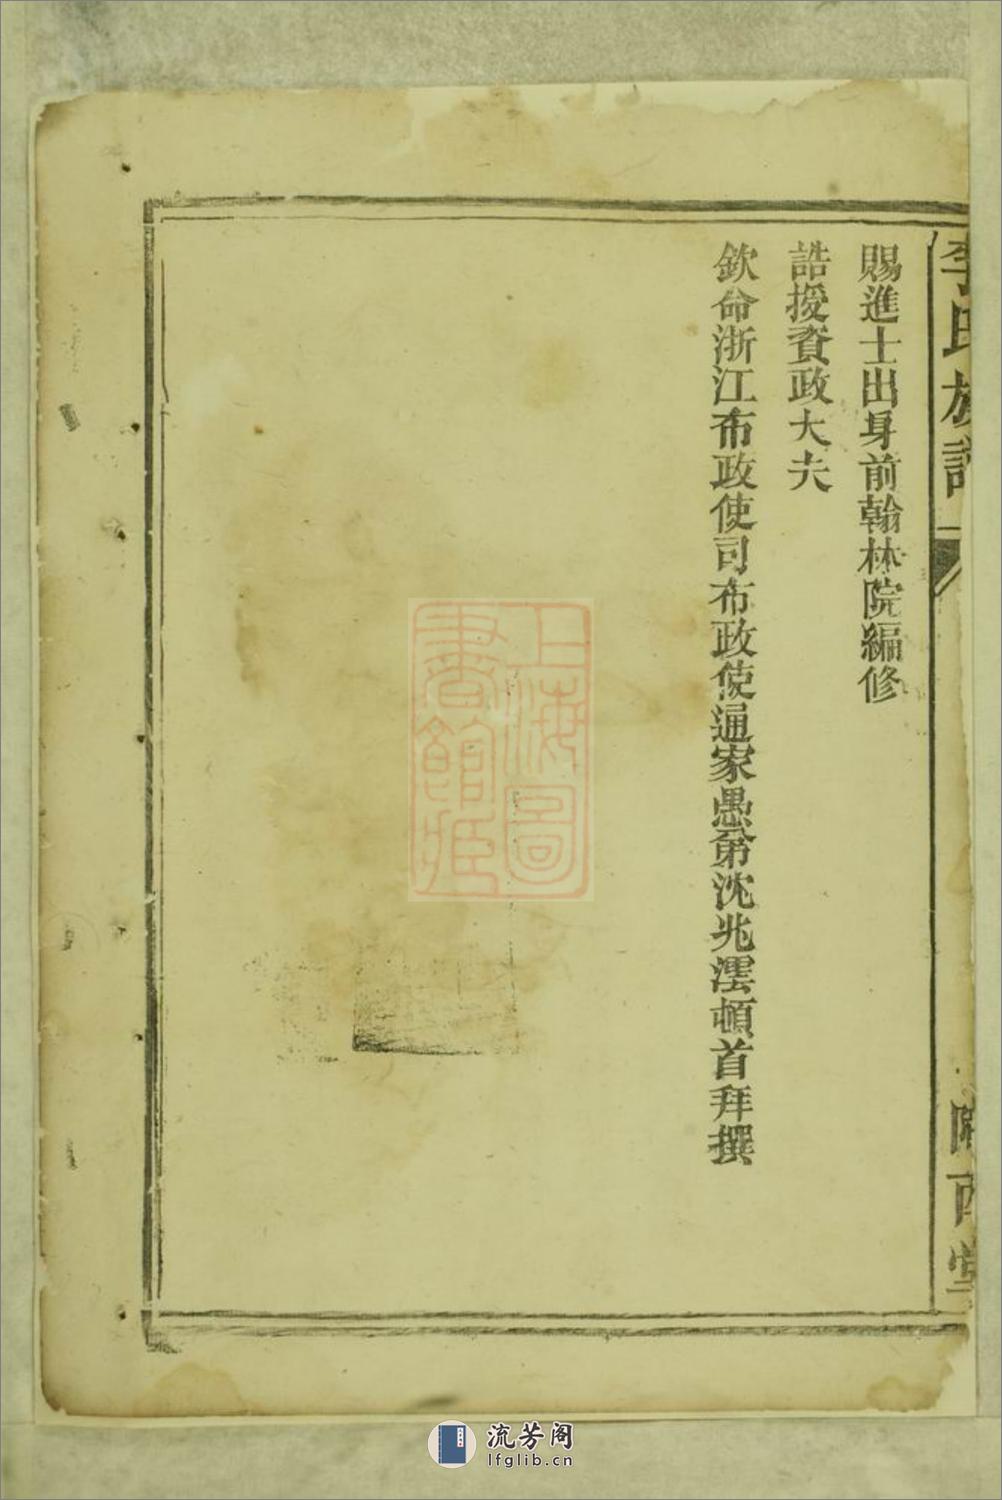 李氏族譜
隴西堂
賜進士出身前翰林院編修
誥授資政大夫
欽命浙江布政使司布政使通家愚弟沈兆澐頓首拜撰
上海圖
書館藏
流芳阁
lfglib.cn